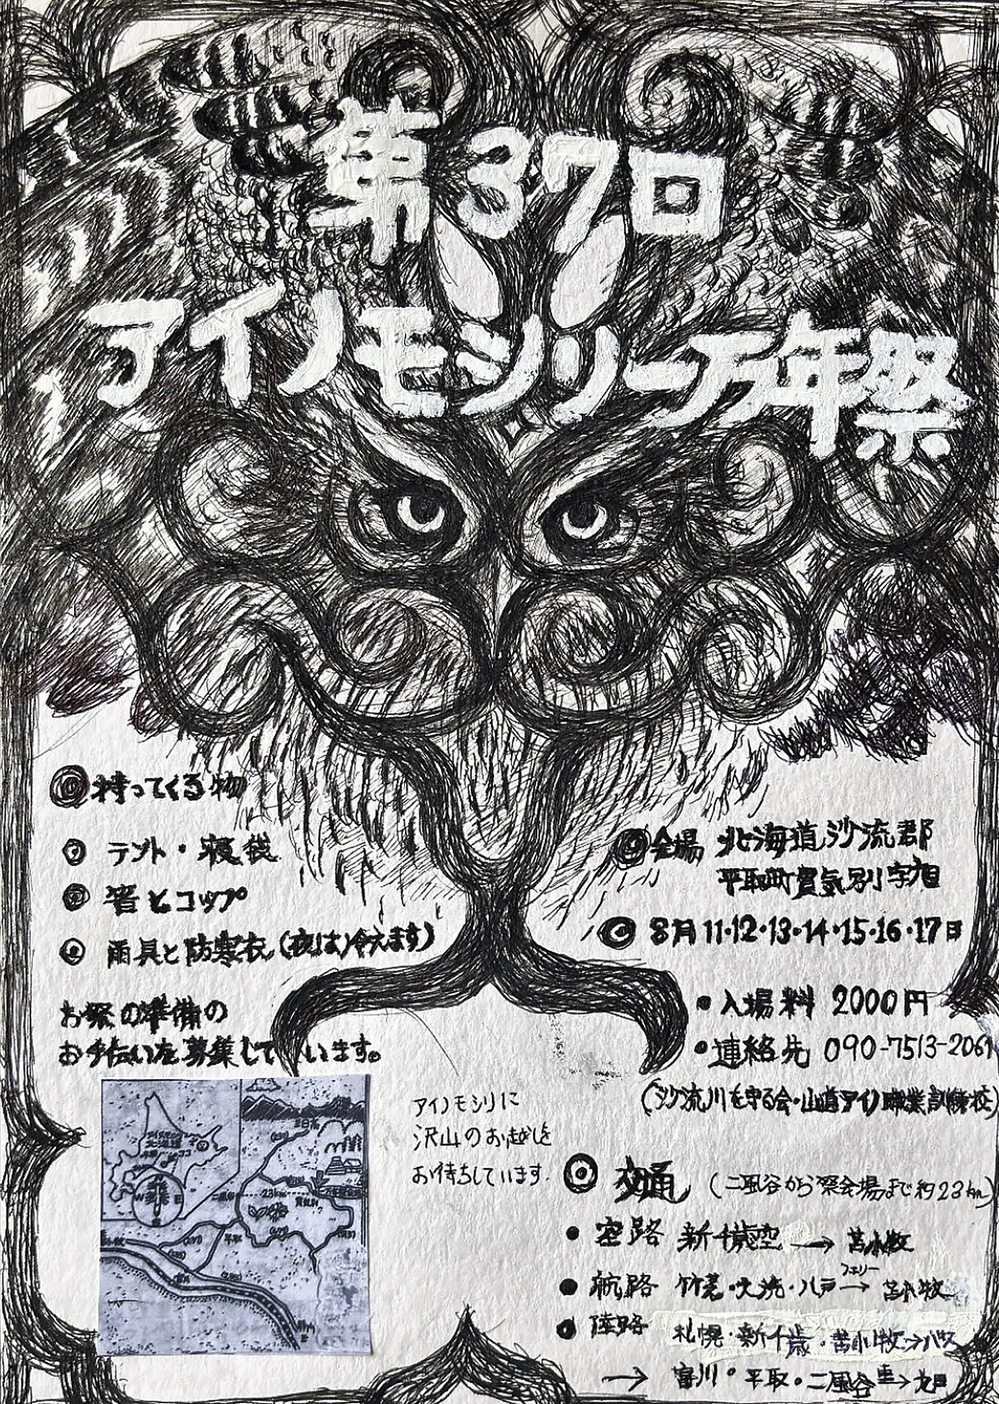 第37回
アイノモシリ一万年祭
持ってくる物
テント・寝袋
箸とコップ
雨具と防寒衣(夜は冷えます)
お祭の準備の
お手伝いを募集しています。
会場 北海道沙流郡
平取町貫気別字旭
8月11・12・13・14・15・16・17日
入場料 2000円
連絡先 090-7513-2061
(沙流川を守る会・山道アイノ職業訓練校)
アイノモシリに
沢山のお越しを
お待ちしています.
交通 (二風谷から祭会場まで約23km)
空路 新千歳空 → 苫小牧
フェリー
航路 大洗・八戸 → 苫小牧
陸路 札幌・新千歳・苫小牧→バス
→ 富川・平取・二風谷 → 旭